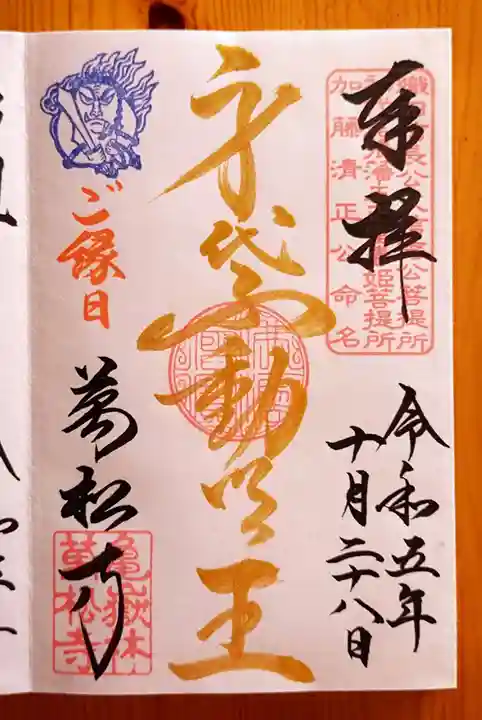 奉拝
加藤清正公命名
令和五年
十月二十八日
身代不動明王
ご縁日
萬松寺
亀嶽林
萬松寺